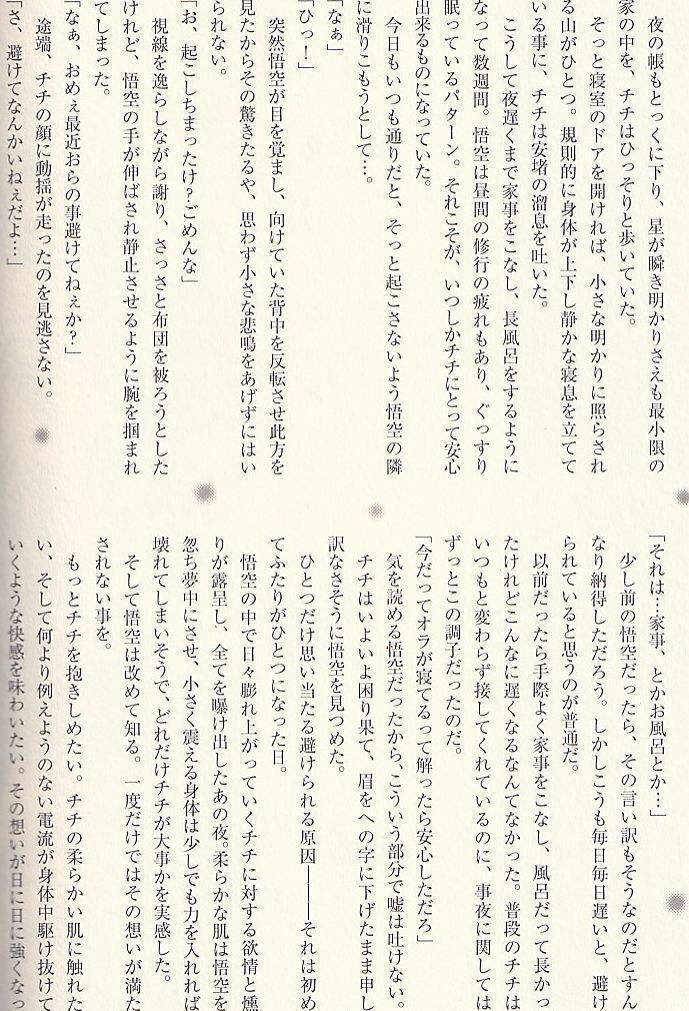 夜の帳もとっくに下り、星が瞬き明かりさえも最小限の
家の中を、チチはひっそりと歩いていた。
そっと寝室のドアを開ければ、小さな明かりに照らされ
る山がひとつ。規則的に身体が上下し静かな寝息を立てて
いる事に、チチは安堵の溜息を吐いた。
こうして夜遅くまで家事をこなし、長風呂をするように
なって数週間。悟空は昼間の修行の疲れもあり、ぐっすり
眠っているパターン。それこそが、いつしかチチにとって安心
出来るものになっていた。
今日もいつも通りだと、そっと起こさないよう悟空の隣
に滑りこもうとして…。
「なぁ」
「ひっ！」
突然悟空が目を覚まし、向けていた背中を反転させ此方を
見たからその驚きたるや、思わず小さな悲鳴をあげずにはい
られない。
「お、起こしちまったけ？ごめんな」
視線を逸らしながら謝り、さっさと布団を被ろうとした
けれど、悟空の手が伸ばされ静止させるように腕を掴まれ
てしまった。
「なぁ、おめぇ最近おらの事避けてねぇか？」
途端、チチの顔に動揺が走ったのを見逃さない。
「さ、避けてなんかいねぇだよ…」
「それは…家事、とかお風呂とか…」
少し前の悟空だったら、その言い訳もそうなのだとすん
なり納得しただろう。しかしこうも毎日毎日遅いと、避け
られていると思うのが普通だ。
以前だったら手際よく家事をこなし、風呂だって長かっ
たけれどこんなに遅くなるなんてなかった。普段のチチは
いつもと変わらず接してくれているのに、事夜に関しては
ずっとこの調子だったのだ。
「今だってオラが寝てるって解ったら安心しただろ」
気を読める悟空だったから、こういう部分で嘘は吐けない。
チチはいよいよ困り果て、眉をへの字に下げたまま申し
訳なさそうに悟空を見つめた。
ひとつだけ思い当たる避けられる原因――それは初め
てふたりがひとつになった日。
悟空の中で日々膨れ上がっていくチチに対する欲情と燻
りが露呈し、全てを曝け出したあの夜。柔らかな肌は悟空を
忽ち夢中にさせ、小さく震える身体は少しでも力を入れれば
壊れてしまいそうで、どれだけチチが大事かを実感した。
そして悟空は改めて知る。一度だけではその想いが満た
されない事を。
もっとチチを抱きしめたい。チチの柔らかい肌に触れた
い、そして何より例えようのない電流が身体中駆け抜けて
いくような快感を味わいたい。その想いが日に日に強くなっ